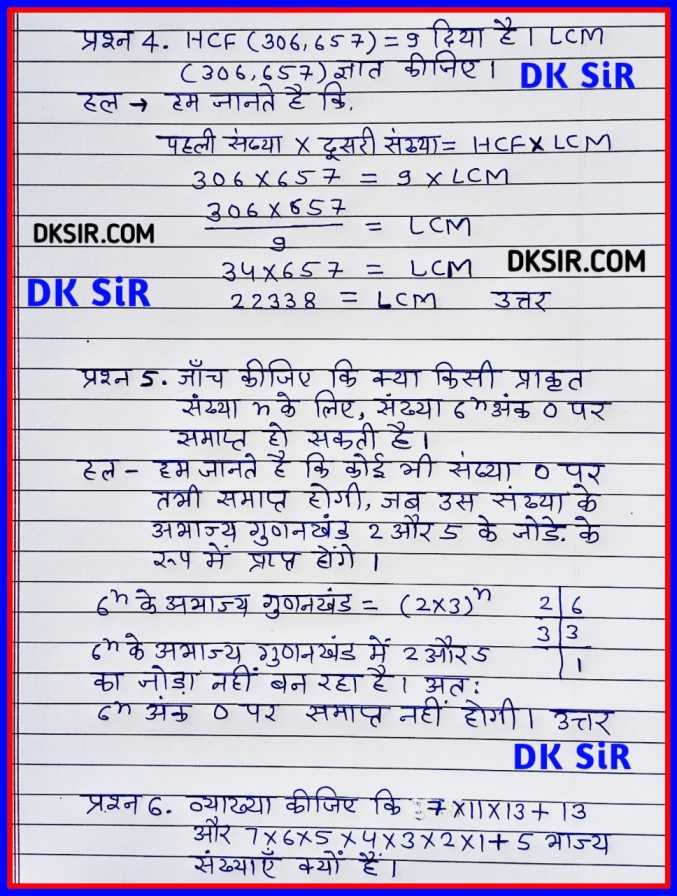 प्रश्न 4. HCF (306,657)=9 दिया है। LCM
(306,657) ज्ञात कीजिए। DK SiR
हल → हम जानते है कि,
पहली संख्या X दूसरी संख्या = HCF X LCM
306 X 657 = 9 X LCM
306 X 657
9 = LCM
DKSIR.COM
34X657 = LCM DKSIR.COM
DK SiR 22338 = LCM उत्तर
प्रश्न 5. जाँच कीजिए कि क्या किसी प्राकृत
संख्या n के लिए, संख्या 6ⁿ अंक 0 पर
समाप्त हो सकती है।
हल - हम जानते है कि कोई भी संख्या 0 पर
तभी समाप्त होगी, जब उस संख्या के
अभाज्य गुणनखंड 2 और 5 के जोडे. के
रूप में प्राप्त होंगे।
6ⁿ के अभाज्य गुणनखंड = (2X3)ⁿ 2 | 6
3 | 3
6ⁿ के अभाज्य गुणनखंड में 2 और 5 | 1
का जोड़ा नहीं बन रहा है। अतः
6ⁿ अंक 0 पर समाप्त नहीं होगी। उत्तर
DK SiR
प्रश्न 6. व्याख्या कीजिए कि 7X11X13+13
और 7X6X5X4X3X2X1+5 भाज्य
संख्याएँ क्यों हैं।